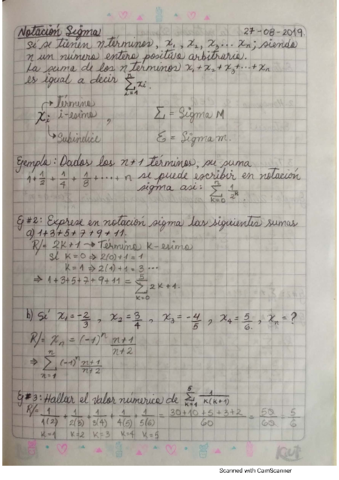 Notación Sigma 27-08-2019
Si se tienen n términos, x₁, x₂, x₃... xₙ; siendo
n un número entero positivo arbitrario.
La suma de los n términos x₁+x₂+x₃+...+xₙ
es igual a decir Σ xᵢ.
Término
xᵢ i-esimo , Σ = Sigma M
Subíndice = Sigma m.
Ejemplo: Dados los n+1 términos, su suma
1+1/2+1/4+1/8+...+n se puede escribir en notación
sigma así: Σ
Ej #2: Exprese en notación sigma las siguientes sumas
a) 1+3+5+7+9+11.
R/= 2K+1 → Término K-esimo
Si K=0 ⇒ 2(0)+1=1
K=1 ⇒ 2(1)+1=3...
⇒ 1+3+5+7+9+11 = Σ K=0 5 2K+1.
b) Si x₁=-2/3, x₂=3/4, x₃=-4/5, x₄=5/6, xₙ=?
R/= xₙ=(-1)ⁿ n+1/n+2
⇒ Σ n=1 n (-1)ⁿ n+1/n+2
Ej #3: Hallar el valor numérico de Σ K=1 5 1/K(K+1)
R/= 1/1(2) + 1/2(3) + 1/3(4) + 1/4(5) + 1/5(6) = 30+10+5+3+2/60 = 50/60 = 5/6
K=1 K=2 K=3 K=4 K=5
Scanned with CamScanner